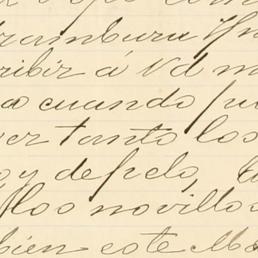 ribir á Vd m
a cuando pu
ver tanto los
y de pelo,
los novillos
bien este Ma